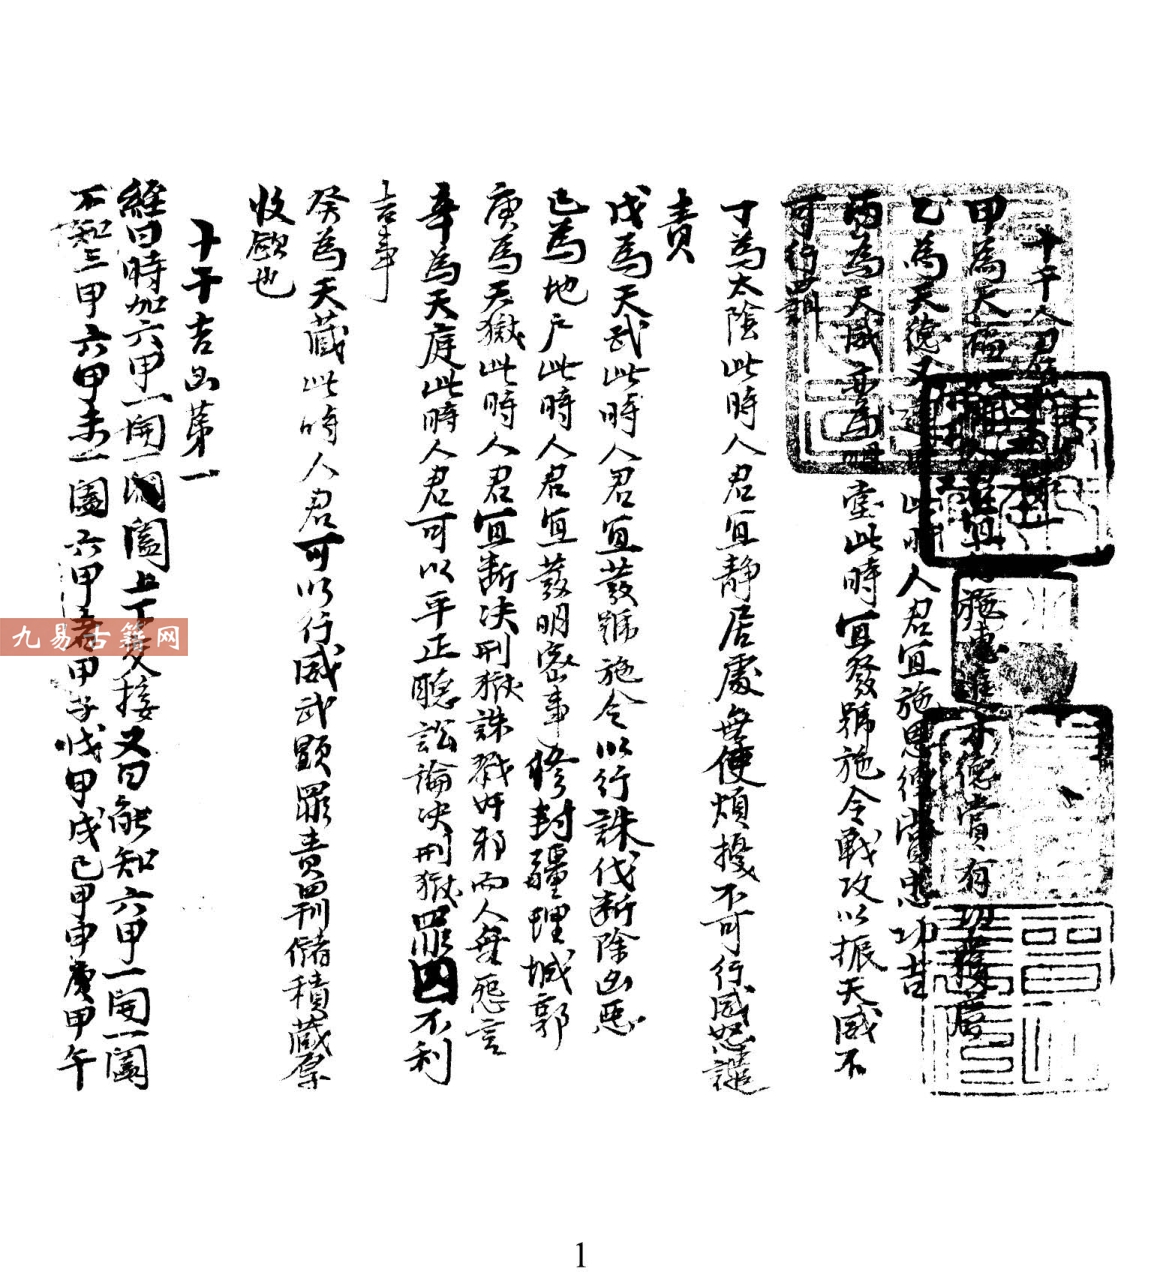 十干人君
甲為天福 人君宜 施惠進才德賞有功
乙為天德又 此時人君宜施恩德賞忠功吉
丙為天威 明堂此時宜發號施令戰攻以振天威不
可行
丁為太陰此時人君宜靜居處無使煩擾不可行威怒譴
責
戊為天武此時人君宜發號施令以行誅伐斷除凶惡
己為地戶此時人君宜發明密事修封疆理城郭
庚為天獄此時人君宜斷決刑獄誅戮奸邪而人無惡言
辛為天庭此時人君可以平正聽訟論決刑獄罪囚不利
吉事
癸為天藏此時人君可以行威武顯罪責罰儲積藏
收歛也
十干吉凶第一
經曰時加六甲一開一闔上下交接又曰能知六甲一開一闔
不知三甲六甲未一闔六甲 甲子戊甲戌己甲申庚甲午
九易古籍网
1